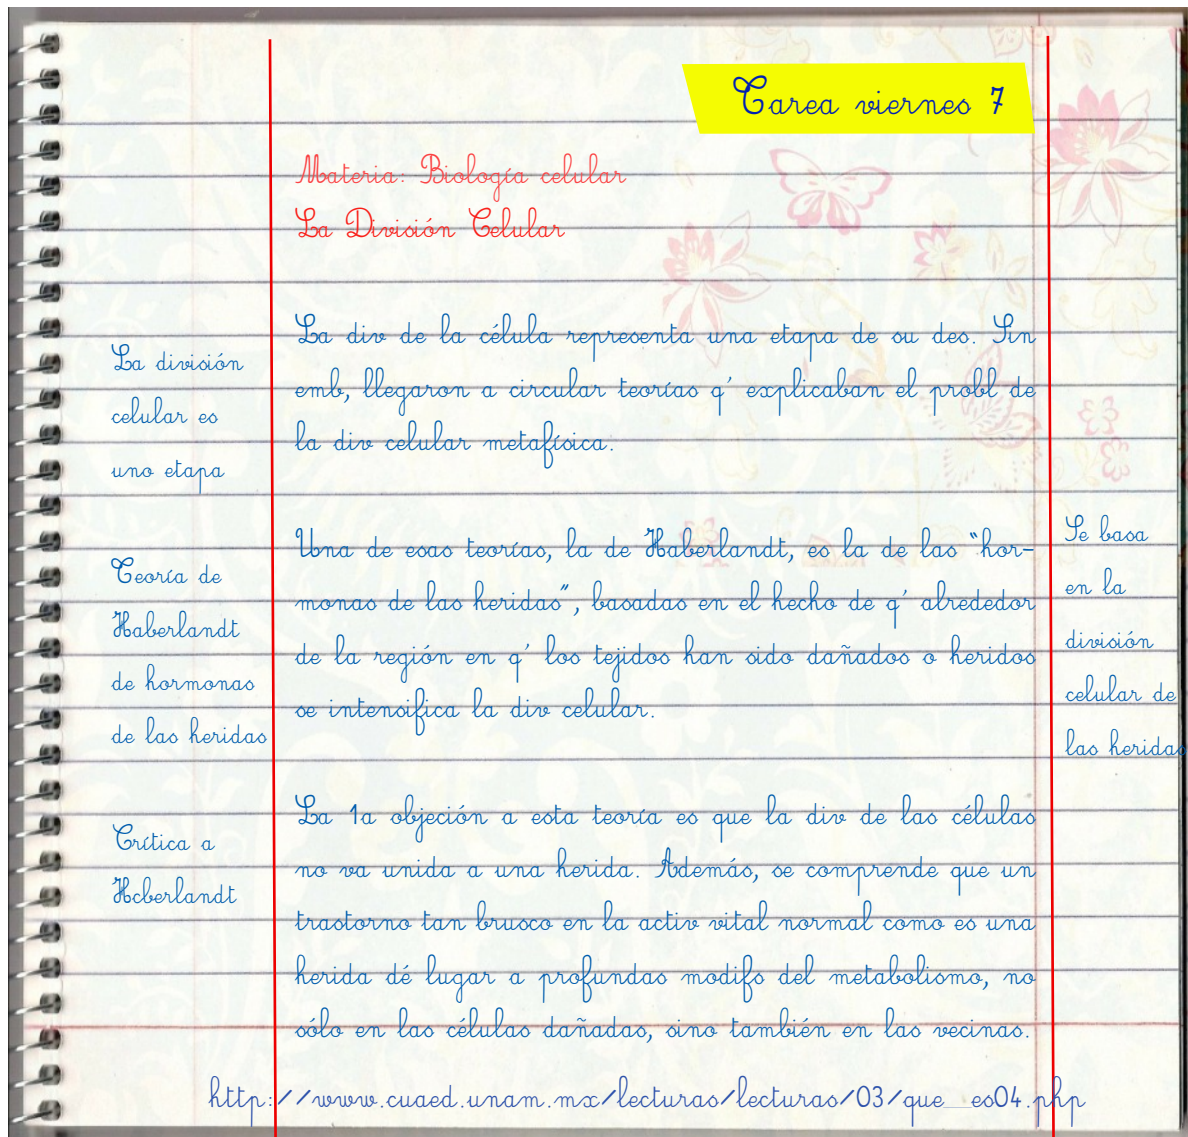 Tarea viernes 7
Materia: Biología celular
La División Celular
La división
celular es
uno etapa
La div de la célula representa una etapa de su des. Sin
emb, llegaron a circular teorías q' explicaban el probl de
la div celular metafísica.
Teoría de
Haberlandt
de hormonas
de las heridas
Una de esas teorías, la de Haberlandt, es la de las "hor-
monas de las heridas", basadas en el hecho de q' alrededor
de la región en q' los tejidos han sido dañados o heridos
se intensifica la div celular.
Se basa
en la
división
celular de
las heridas
Crítica a
Hcberlandt
La 1a objeción a esta teoría es que la div de las células
no va unida a una herida. Además, se comprende que un
trastorno tan brusco en la activ vital normal como es una
herida dé lugar a profundas modifs del metabolismo, no
sólo en las células dañadas, sino también en las vecinas.
http://www.cuaed.unam.mx/lecturas/lecturas/03/que_es04.php